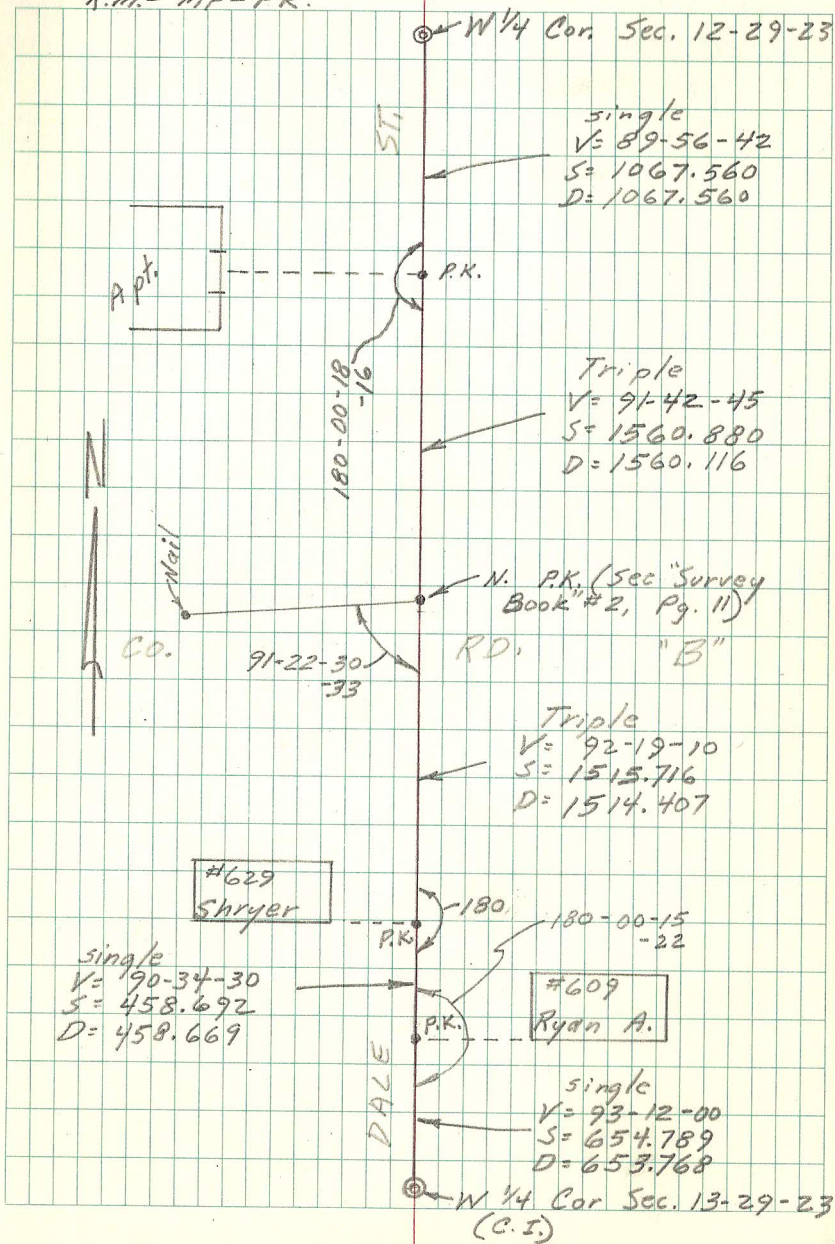 W 1/4 Cor. Sec. 12-29-23
ST.
single
V= 89-56-42
S= 1067.560
D= 1067.560
Apt.
P.K.
180-00-18
-16
Triple
V= 91-42-45
S= 1560.880
D= 1560.116
N
Nail
N. P.K. (Sec "Survey
Book" #2, Pg. 11)
CO.
RD.
"B"
91-22-30
-33
Triple
V= 92-19-10
S= 1515.716
D= 1514.407
#629
Shryer
180
P.K.
180-00-15
-22
single
V= 90-34-30
S= 458.692
D= 458.669
#609
Ryan A.
P.K.
DALE
single
V= 93-12-00
S= 654.789
D= 653.768
W 1/4 Cor Sec. 13-29-23
(C.I.)